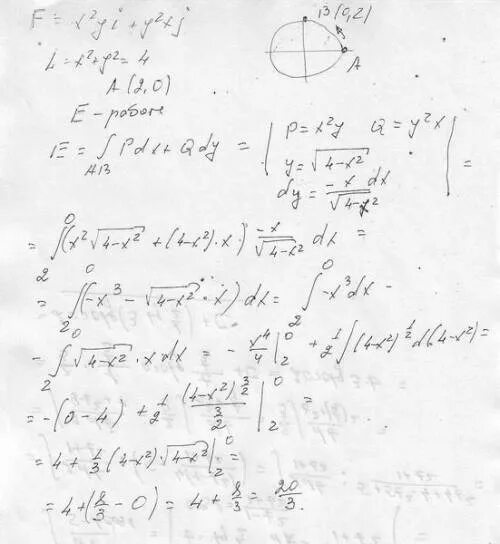 F = x²y i + y²x j
B(0,2)
L = x²+y² = 4
A
A(2,0)
E - работа
E = ∫ Pdx + Qdy = | P = x²y Q = y²x
AB
y = √4-x²
dy = -x/√4-x² dx | =
= ∫₂⁰ (x² √4-x² + (4-x²)·x) -x/√4-x² dx =
= ∫₂⁰ (-x³ - √4-x² · x) dx = ∫₂⁰ -x³dx -
- ∫₂⁰ √4-x² · x dx = - x⁴/4 |₂⁰ + 1/2 ∫ (4-x²)^1/2 d(4-x²) =
= -(0-4) + 1/2 (4-x²)^3/2 / 3/2 |₂⁰ =
= 4 + 1/3 (4-x²)·√4-x² |₂⁰ =
= 4 + (8/3 - 0) = 4 + 8/3 = 20/3.